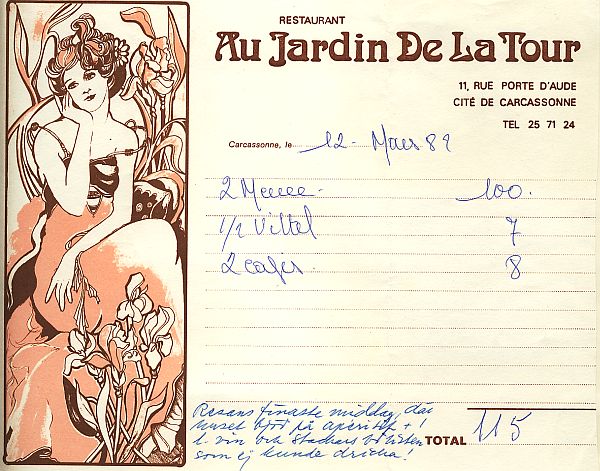 RESTAURANT
Au Jardin De La Tour
11, RUE PORTE D'AUDE
CITÉ DE CARCASSONNE
TEL 25 71 24
Carcassonne, le 12 - Mars 82
2 Menu - 100.
1/2 Vittel 7
2 cafés. 8
Resans finaste middag, där
huset bjöd på aperitif + !
l. vin och stackars
som ej kunde dricka!
TOTAL 115